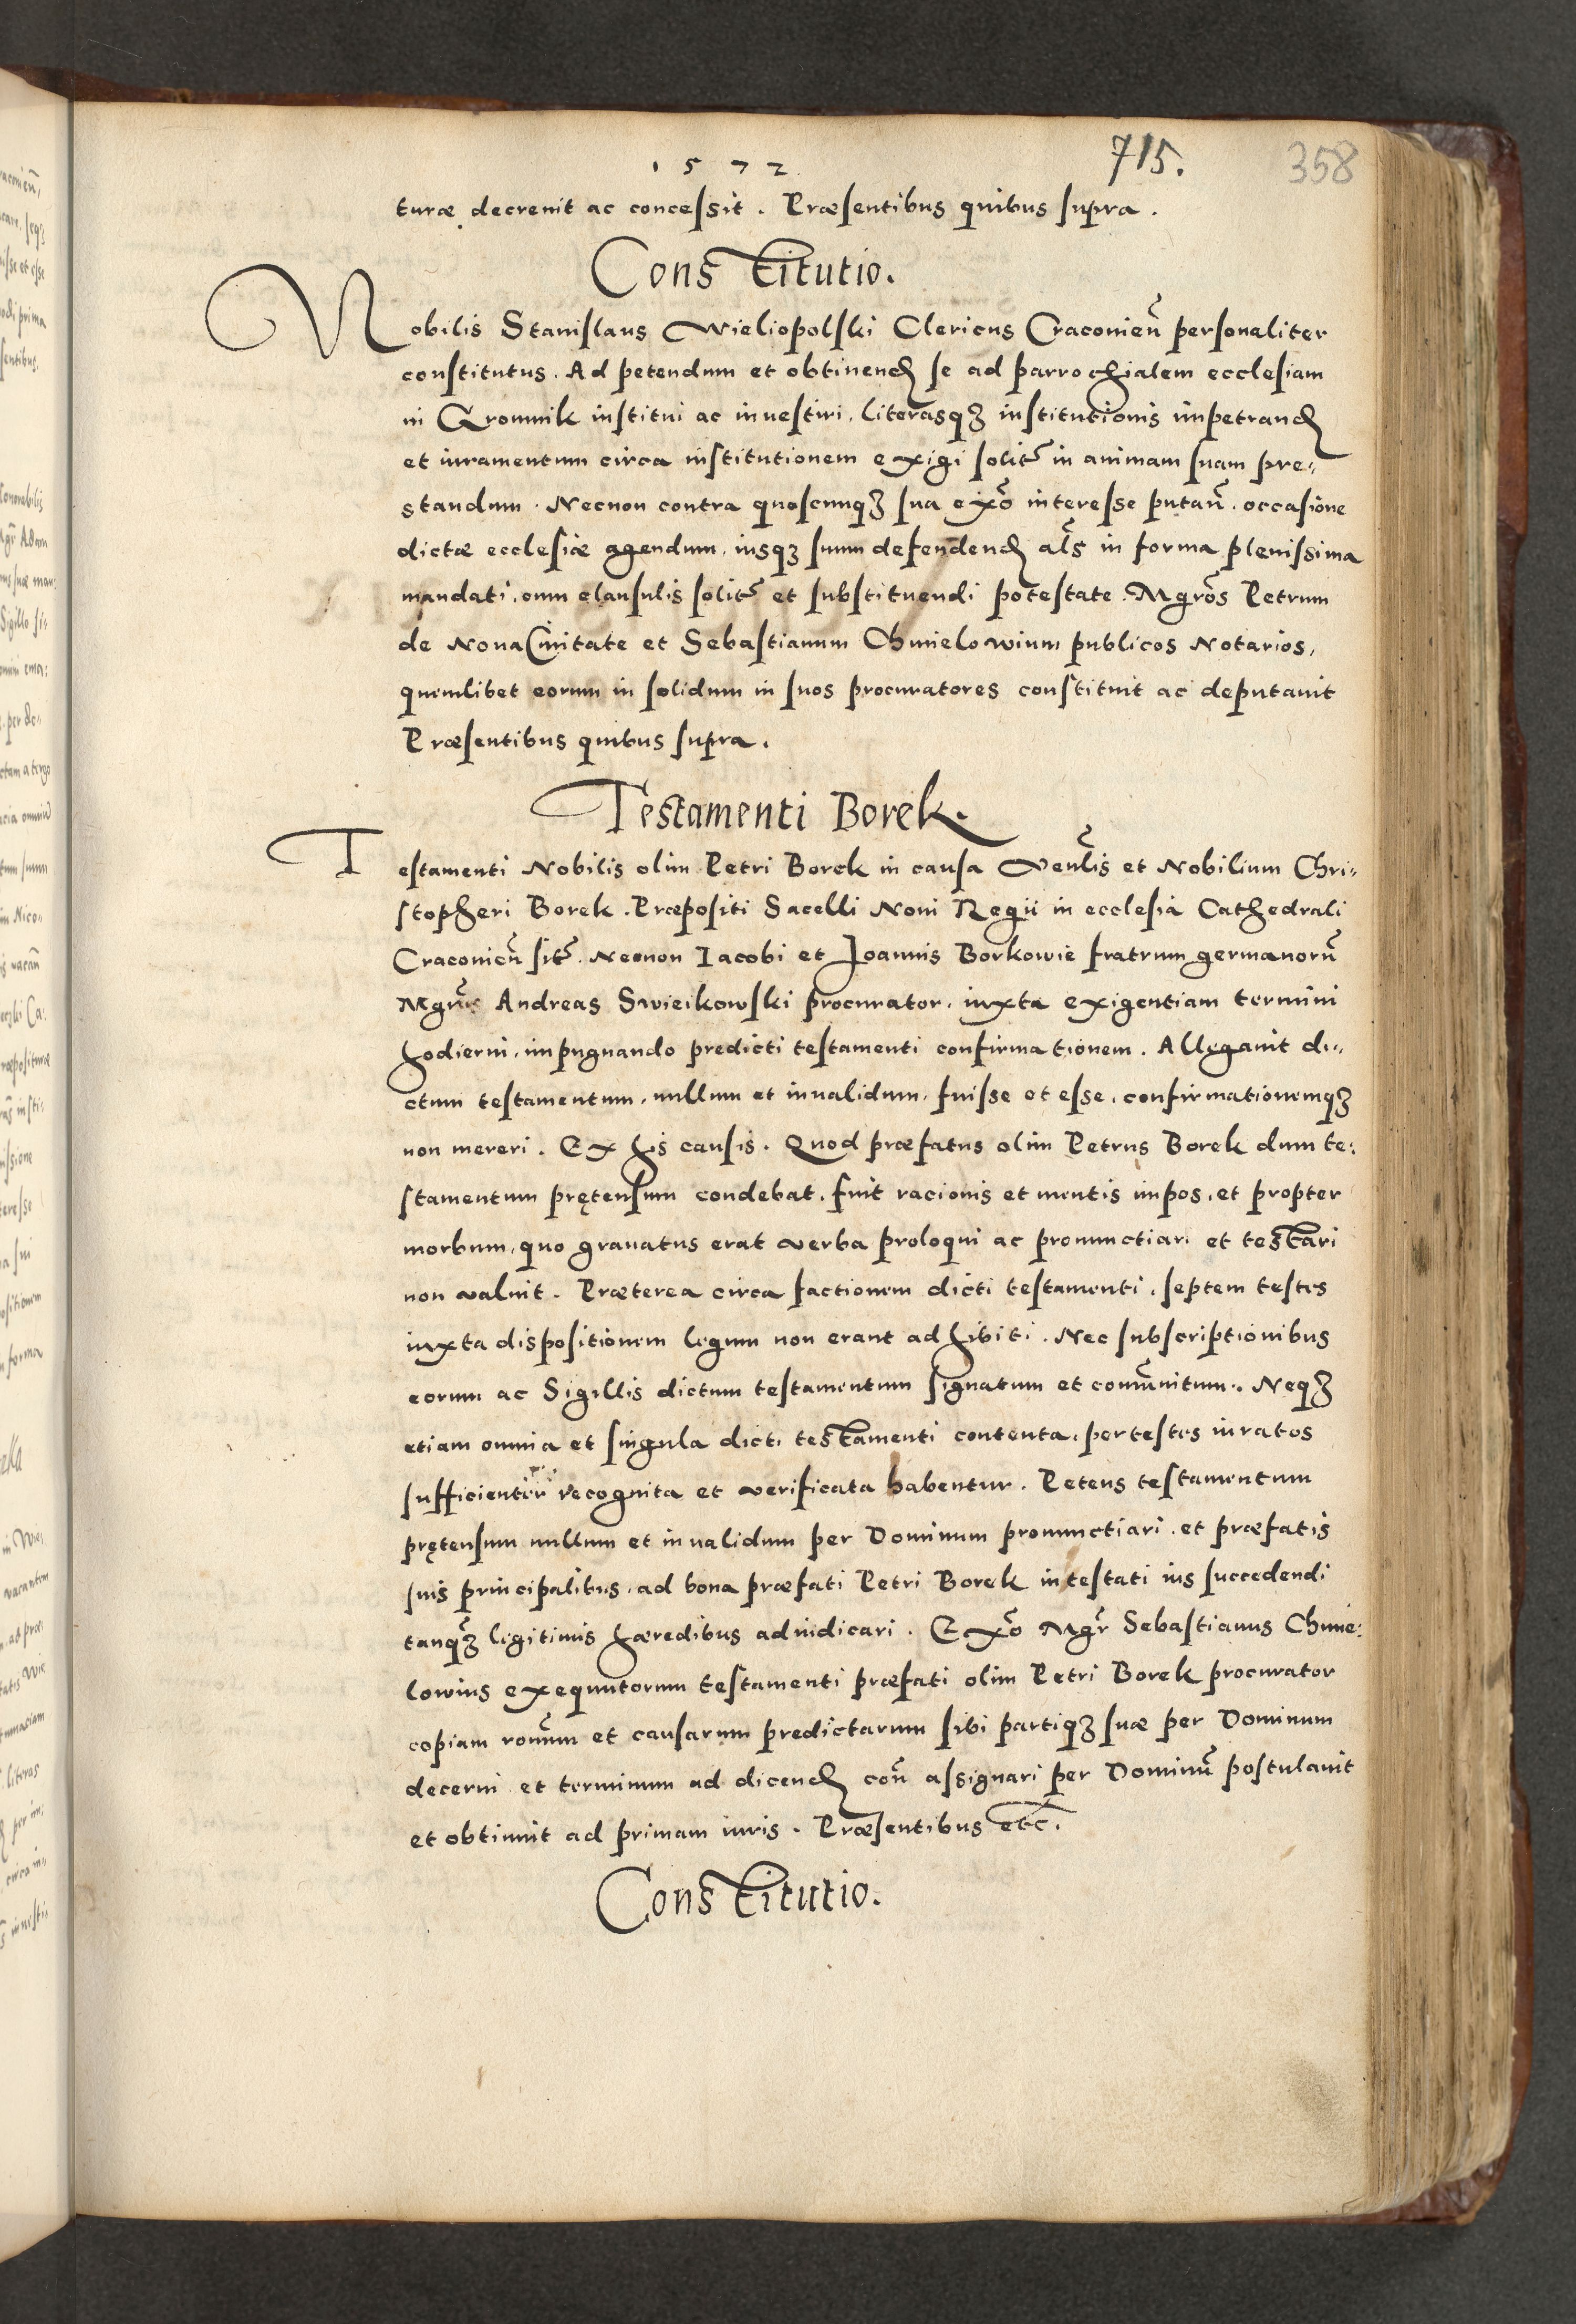 1572
715.
358
turæ decreuit ac concessit. Præsentibus quibus supra.
Constitutio.
Nobilis Stanislaus Wieliopolski Clericus Craconień personaliter
constitutus. Ad petendum et obtinend se ad parrochialem ecclesiam
in Gromnik institui ac inuestiri, literasqz institutionis impetrand
et iuramentum circa institutionem exigi solit in animam suam pre=
standum. Necnon contra quoscunqz sua exõ interesse putań. occasione
dictæ ecclesiæ agendum, iusqz suum defendend als in forma plenissima
mandati, cum clausulis solit et substituendi potestate. Mgros Petrum
de Noua Ciuitate et Sebastianum Chmielowium publicos Notarios,
quemlibet eorum in solidum in suos procuratores constituit ac deputauit
Præsentibus quibus supra.
Testamenti Borek.
Testamenti Nobilis olim Petri Borek in causa Venlis et Nobilium Chri=
stopheri Borek. Præpositi Sacelli Noui Regii in ecclesia Cathedrali
Craconień sit. Necnon Iacobi et Joannis Borkowie fratrum germanorũ
Mgr Andreas Swieikowski procurator, iuxta exigentiam termini
hodierni, impugnando predicti testamenti confirmationem. Allegauit di=
ctum testamentum, nullum et inualidum, fuisse et esse, confirmationemqz
non mereri. Ex his causis. Quod præfatus olim Petrus Borek dum te=
stamentum prętensum condebat, fuit racionis et mentis impos, et propter
morbum, quo grauatus erat verba proloqui ac pronunctiari et testari
non valuit. Præterea circa factionem dicti testamenti, septem testes
iuxta dispositionem legum non erant adhibiti. Nec subscriptionibus
eorum ac Sigillis dictum testamentum signatum et comũnitum. Neqz
etiam omnia et singula dicti testamenti contenta, per testes iuratos
sufficienter recognita et verificata habentur. Petens testamentum
prętensum nullum et inualidum per Dominum pronunctiari, et præfatis
suis principalibus, ad bona præfati Petri Borek intestati ius succedendi
tanqz legitimis hæredibus adiudicari. Exõ Mgr Sebastianus Chmie=
lowius exequutorum testamenti præfati olim Petri Borek procurator
copiam ronum et causarum predictarum sibi partiqz suæ per Dominum
decerni et terminum ad dicend coñ assignari per Dominũ postulauit
et obtinuit ad primam iuris. Præsentibus etc.
Constitutio.